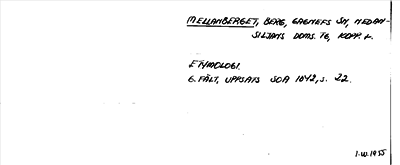 MELLANBERGET, BERG, GAGNEFS SN, NEDAN-
SILJANS DOMS. TG, KOPP. L.
ETYMOLOGI.
G. FÄLT, UPPSATS SOA 1842, S. 22.
1.III.1955